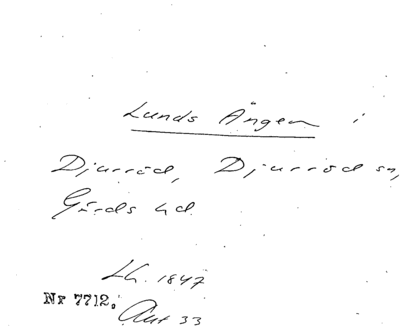 Lunds Ängen i
Djurröd, Djurröd sn,
Gärds hd.
Lh. 1847
Nr 7712.
Akt 33